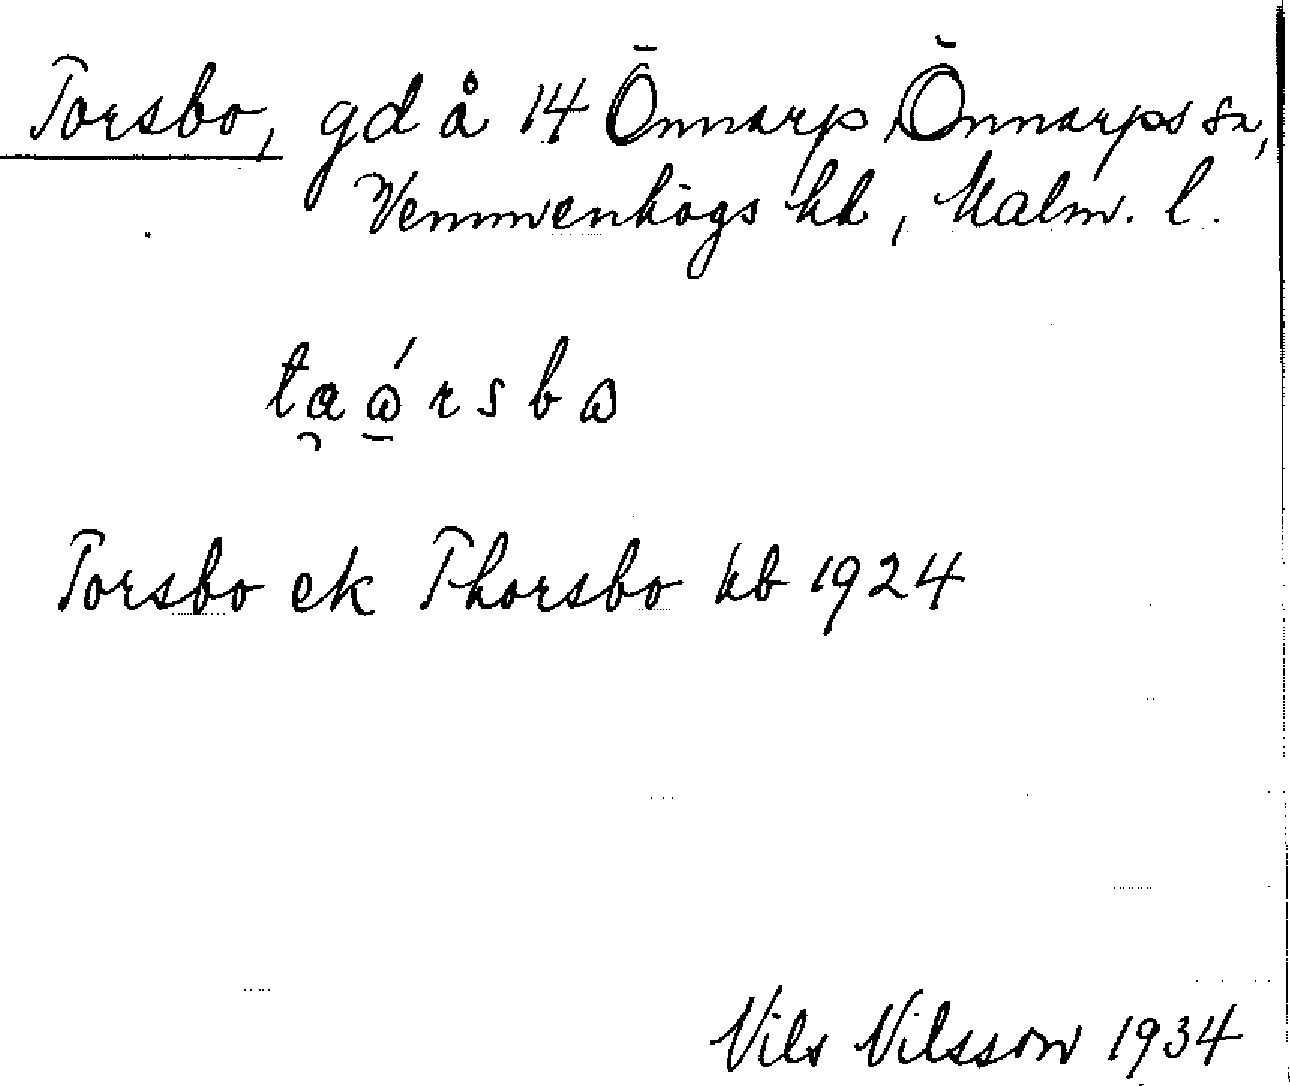 Torsbo, gd å 14 Önnarp, Önnarps sn,
Vemmenhögs hd, Malm. l.
taώrsbω
Torsbo ek Thorsbo kb 1924
Nils Nilsson 1934